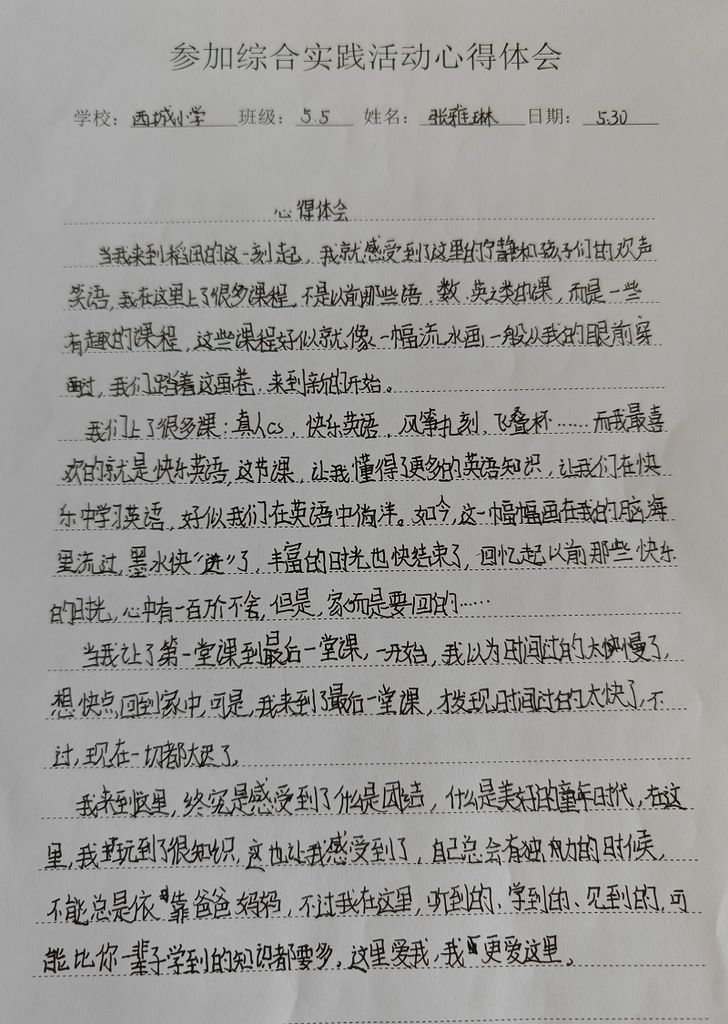 参加综合实践活动心得体会
学校：西城小学 班级：5.5 姓名：张雅琳 日期：5.30
心得体会
当我来到稻田的这一刻起，我就感受到了这里的宁静和孩子们的欢声
笑语，我在这里上了很多课程，不是以前那些语、数、英之类的课，而是一些
有趣的课程，这些课程好似就像一幅流水画一般从我的眼前穿
过，我们踏着这画卷，来到新的开始。
我们上了很多课：真人cs，快乐英语，风筝扎刻、飞叠杯……而我最喜
欢的就是快乐英语，这节课，让我懂得了更多的英语知识，让我们在快
乐中学习英语，好似我们在英语中倘洋。如今，这一幅幅画在我的脑海
里流过，墨水快“进”了，丰富的时光也快结束了，回忆起以前那些快乐
的时光，心中有一百万个不舍，但是，家而是要回的……
当我让了第一堂课到最后一堂课，一开始，我以为时间过的太慢了，
想快点回到家中，可是，我来到了最后一堂课，才发现时间过的太快了，不
过，现在一切都太迟了。
我来到这里，终究是感受到了什么是团结，什么是美好的童年时代，在这
里，我玩到了很知识，这也让我感受到了，自己总会有独力的时候，
不能总是依靠爸爸妈妈，不过我在这里，听到的、学到的、见到的，可
能比你一辈子学到的知识都要多。这里爱我，我更爱这里。